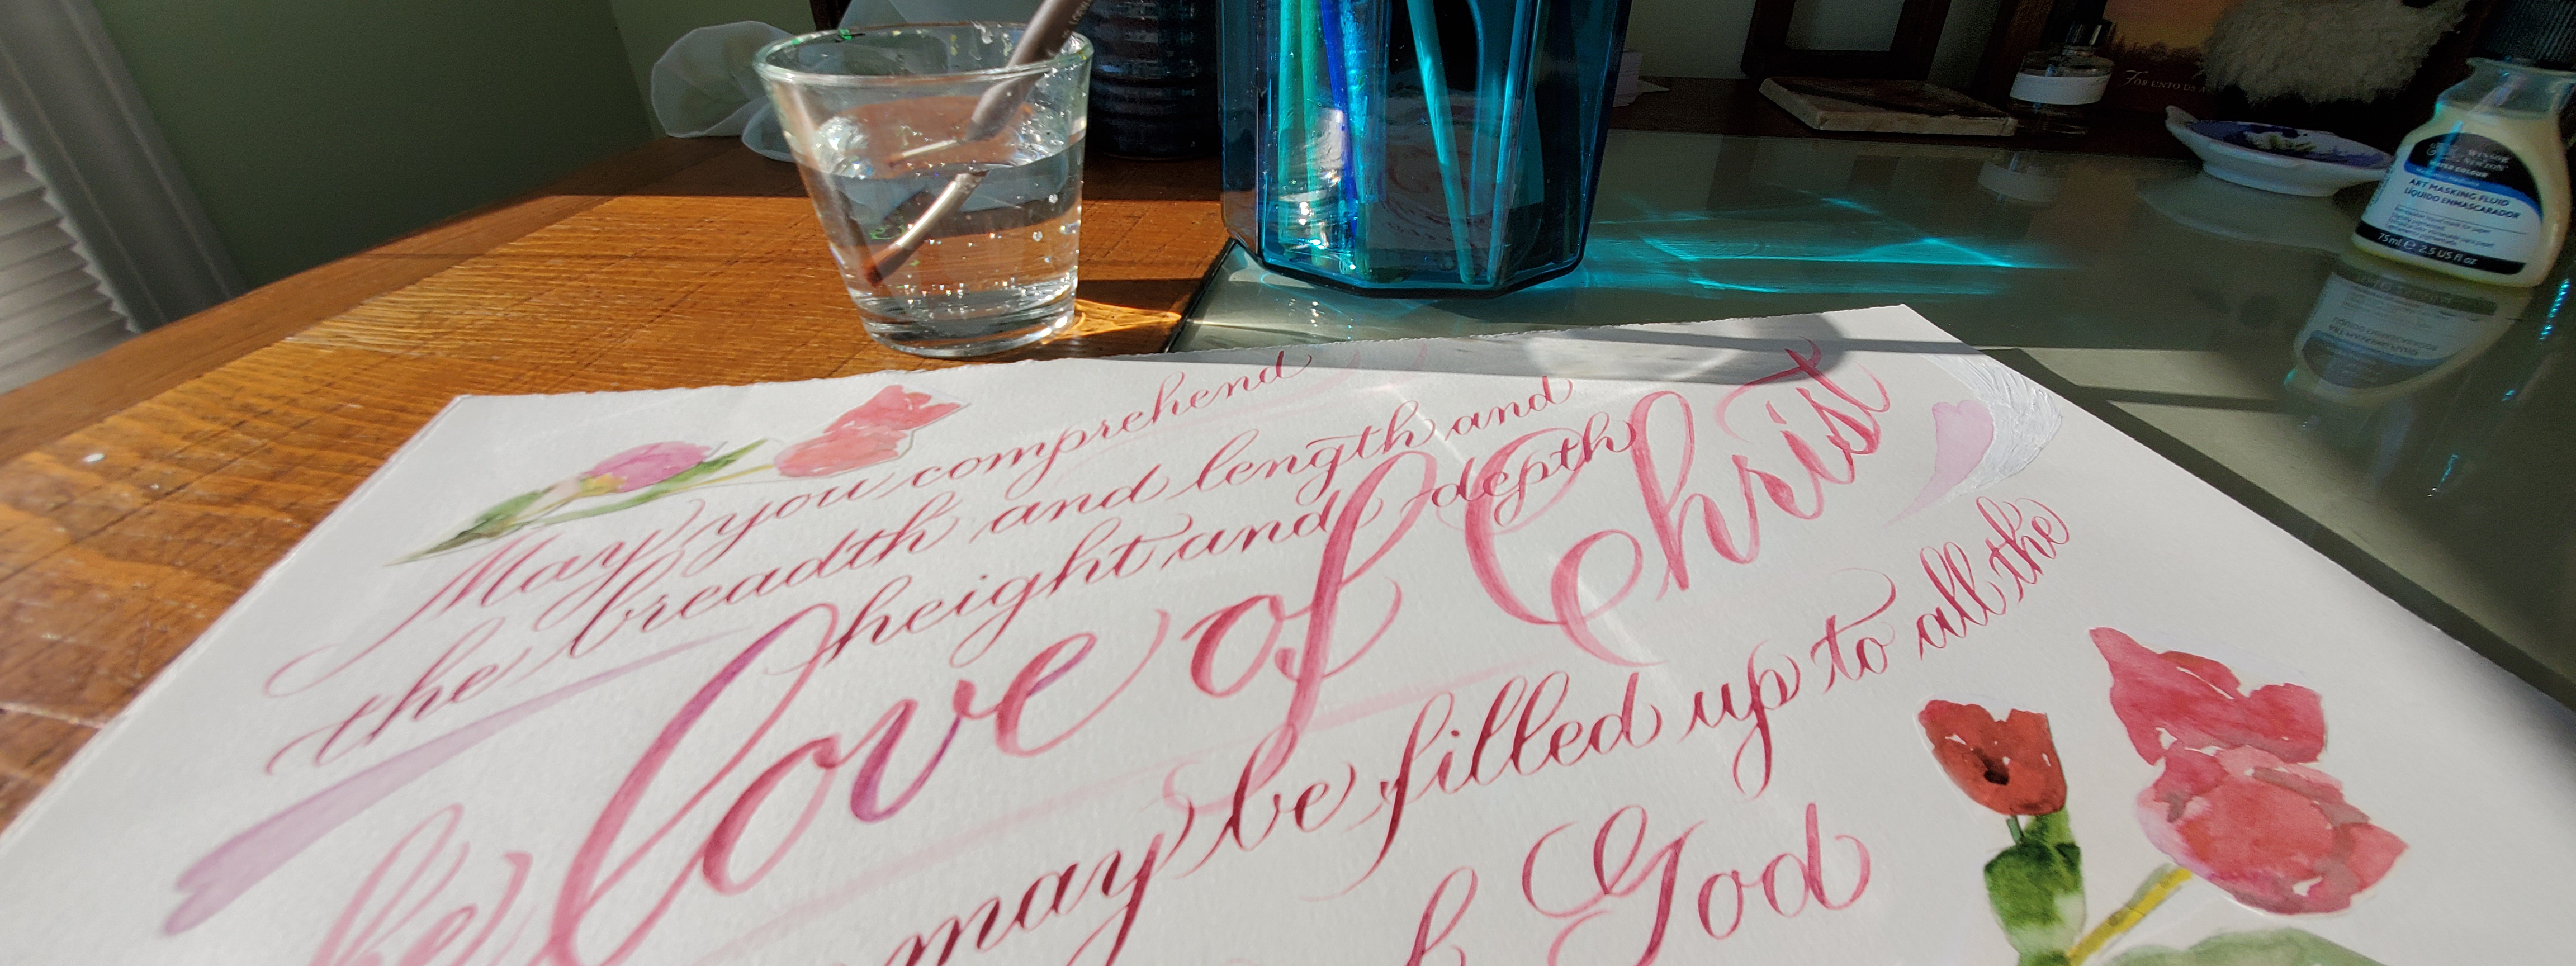 FOR UNTO US A
WINSOR
& NEWTON
WATER COLOUR
ART MASKING FLUID
LÍQUIDO ENMASCARADOR
75ml e 2.5 US fl oz
May you comprehend
the breadth and length and
height and depth
the love of Christ
may be filled up to all the
God